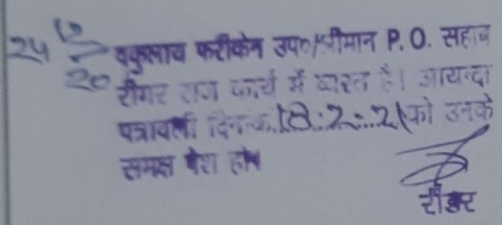 24/12/20 वकुलाय फरीकेन उप०/श्रीमान P.O. सहाब
दीगर राज कार्य में व्यस्त है। आयन्दा
पत्रावली दिनांक 18.2.21 को उनके
समक्ष पेश हो
रीडर